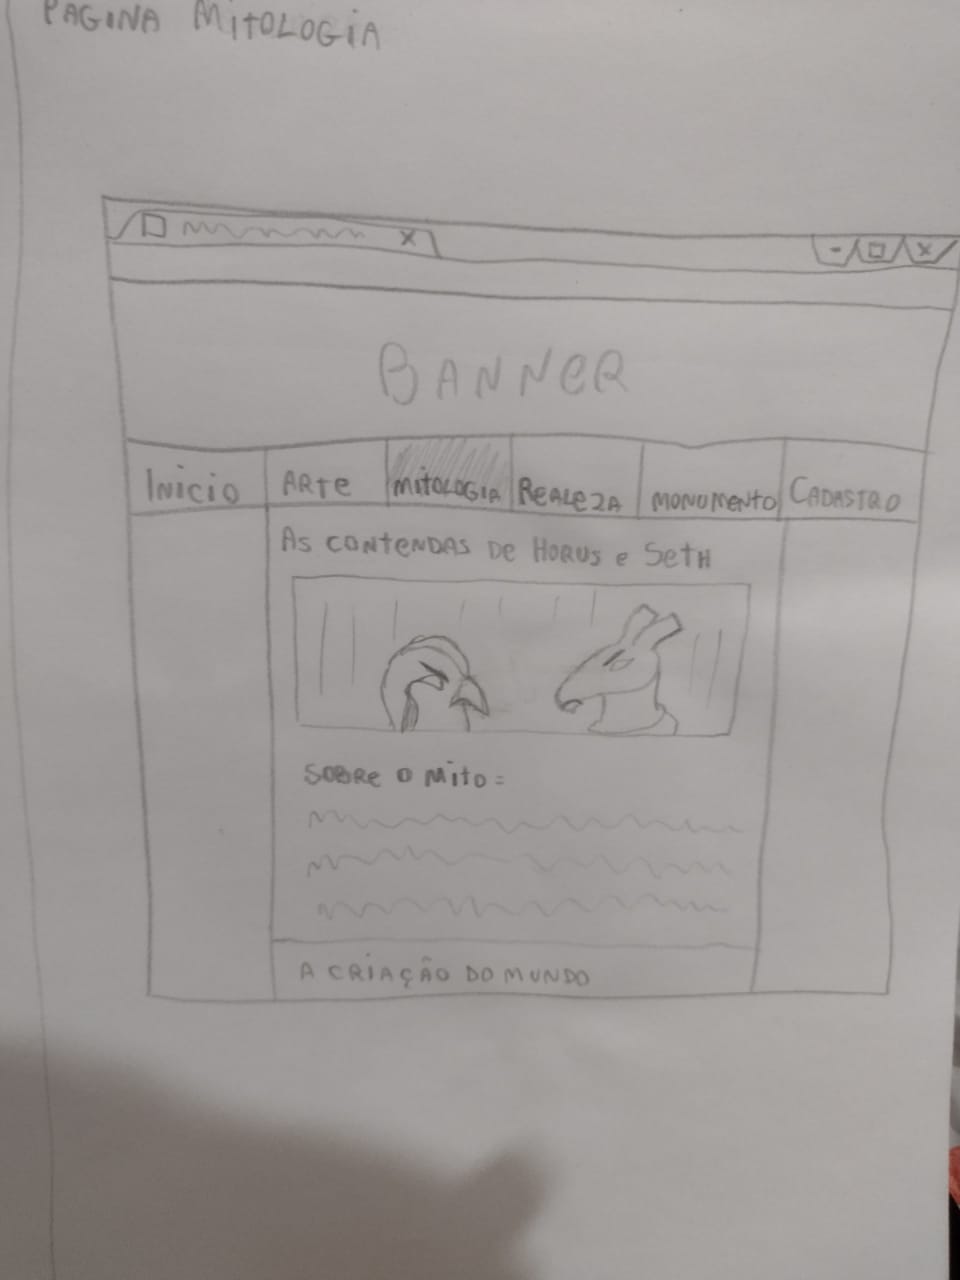 PAGINA MITOLOGIA
X
- X
BANNER
INICIO ARTE MITOLOGIA REALEZA MONUMENTO CADASTRO
AS CONTENDAS DE HORUS e SETH
SOBRE O MITO:
A CRIAÇÃO DO MUNDO